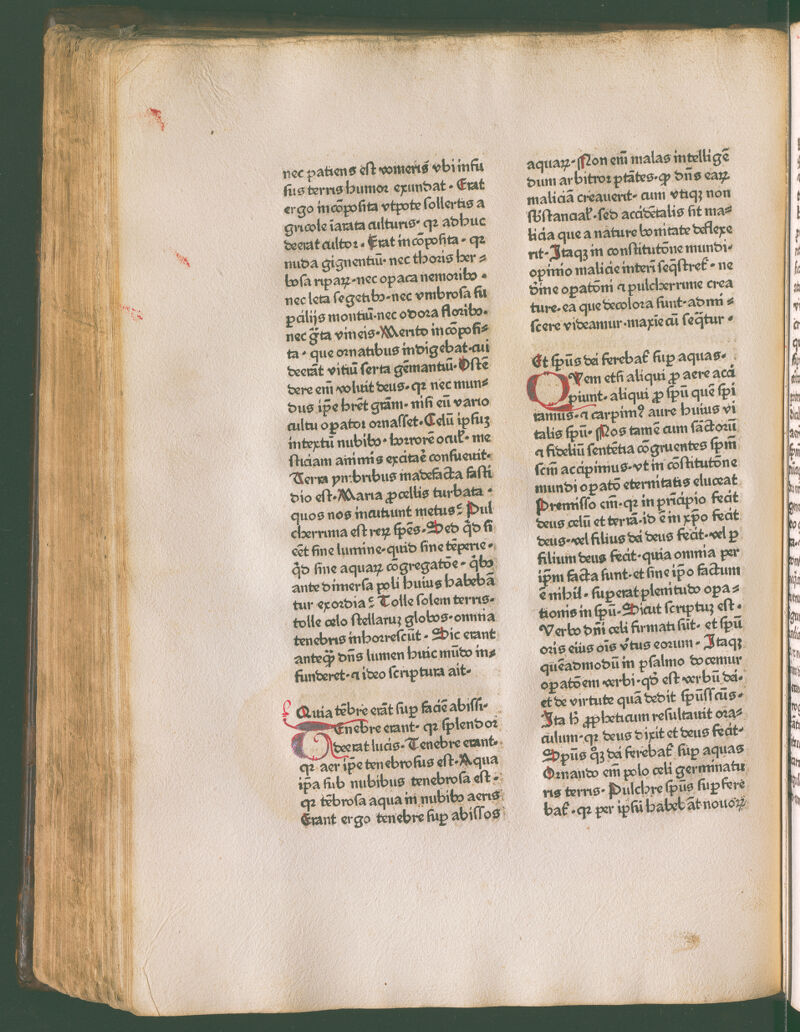 nec patiens est vomeris̄ vbi infu
sus terris humor exundat · Erat
ergo incōposita vtpote sollertis a
gricole īarata culturis· qꝛ adhuc
deerat cultoꝛ · Erat incōposita · qꝛ
nuda gignentiū· nec thoris her⸗
bosa ripaꝝ· nec opaca nemoribꝰ ·
nec leta segetibꝰ· nec vmbrosa su
ꝑcilijs montiū· nec odora floribꝰ·
nec gͣta vineis· Merito incōposi⸗
ta · que ornatibus indigebat· cui
deerāt vitiū serta gēmantiū· Ostē
dere em̄ voluit deus· qꝛ nec mun⸗
dus ip̄e hr̄et gr̄am· nisi eū vario
cultu oꝑatoꝛ ornasset· Celū ipsuꝫ
intextū nubibꝰ· horrorē oculꝭ· me
sticiam animis excitaē consueuit·
Terra ymbribus madefacta fasti
dio est· Maria ꝓcellis turbata ·
quos nos incutiunt metus⹔ Pul
cherrima est reꝝ spēs· Sed qͥd si
eēt sine lumine· quid sine tēperie·
qͥd sine aquaꝝ cōgregatōe · qͥbꝰ
ante dimersa poli huius habebā
tur exordia⹔ Tolle solem terris·
tolle celo stellaruꝫ globos· omnia
tenebris inhorrescūt · Sic erant
anteqͣꝫ dn̄s lumen huic mūdo in⸗
funderet· ⁊ ideo scriptura ait·
Quia tēbre erāt suꝑ faciē abissi·
Tenebre erant· qꝛ splendoꝛ
deerat lucis· Tenebre erant·
qꝛ aer ip̄e tenebrosus est· Aqua
ip̄a sub nubibus tenebrosa est·
qꝛ tēbrosa aqua in nubibꝰ aeris
Erant ergo tenebre suꝑ abissos
aquaꝝ· Non em̄ malas intelligē
dum arbitroꝛ ptātes· ꝙ dn̄s eaꝝ
maliciā creauerit· cum vtiqꝫ non
sb̄stancialꝭ· sed accidētalis sit ma⸗
licia que a nature bonitate deflexe
rit· Itaqꝫ in constitutōne mundi·
opinio malicie interī seq̄stretꝭ· ne
diīne oꝑatōni ⁊ pulcherrime crea
ture· ea que decolora sunt· admi⸗
scere videamur· maxīe cū seq̄tur·
Et sp̄us dei ferebatꝭ suꝑ aquas·
Quem etsi aliqui ꝓ aere acci
piunt· aliqui ꝓ sp̄ū quē spi
ramus· ⁊ carpimꝰ aure huius vi
talis sp̄ū· Nos tamē cum sāctoꝝ
⁊ fideliū sentētia cōgruentes sp̄m
scm̄ accipimus· vt in cōstitutōne
mundi oꝑatō eternitatis eluceat
Premisso em̄· qꝛ in pͥncipio fecit
deus celū et terrā· id ē in xp̄o fecit
deus· vel filius dei deus fecit· vel ꝑ
filium deus fecit· quia omnia per
ip̄m facta sunt· et sine ip̄o factum
ē nihil· suꝑerat plenitudo oꝑa⸗
tionis in sp̄ū· Sicut scriptuꝫ est·
Verbo dn̄i celi firmati sūt· et sp̄ū
oris eius oīs v̄tus eorum· Itaqꝫ
quēadmodū in psalmo docemur
oꝑatōem verbi· qd̄ est verbū dei·
et de virtute quā dedit sp̄ūs scūs·
Ita h̄ ꝓpheticum resultauit ora⸗
culum· qꝛ deus dixit et deus fecit·
Sp̄ūs qͦꝫ dei ferebatꝭ suꝑ aquas
Ornando em̄ polo celi germinatu
ris terris· Pulchre sp̄ūs suꝑfere
batꝭ· qꝛ per ip̄sū habebāt nouoꝝ